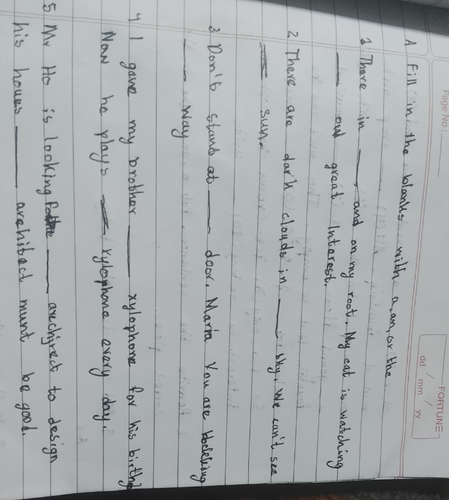 Page No:
FORTUNE
dd / mm / yy
A Fill in the blanks with a, an, or the
1 There in ___, and on my root. My cat is watching
___ owl great Interest.
2 There are dark clouds in ___ sky. We can't see
___ sun.
3 Don't stand at ___ door, Marta You are blocking
___ way
4 I gave my brother ___ xylophone for his birthd
Now he plays ___ xylophone every day.
5 Mr Ho is looking for ___ architect to design
his houes ___ architect munt be good.